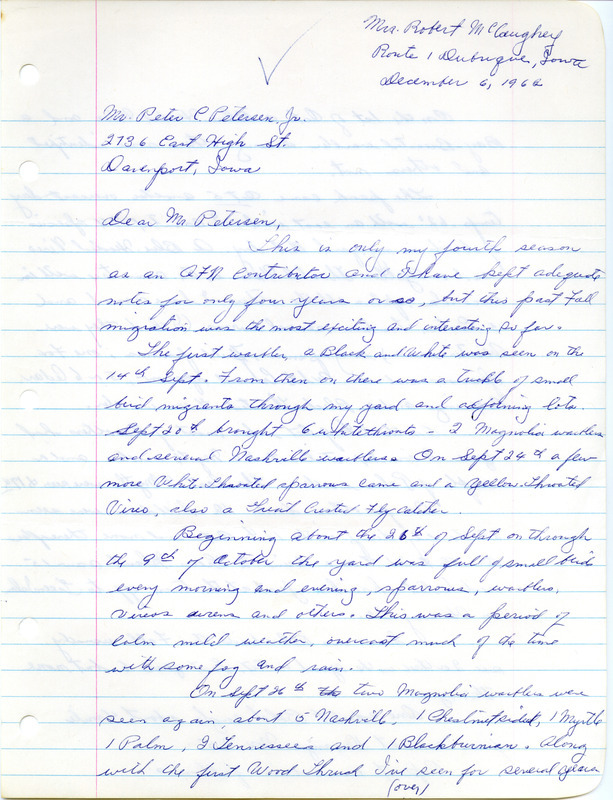 Mrs. Robert McCaughey
Route 1 Dubuque, Iowa
December 6, 1962
Mr. Peter C. Petersen, Jr.
2736 East High St.
Davenport, Iowa
Dear Mr. Petersen,
This is only my fourth season
as an AFN Contributor and I have kept adequate
notes for only four years or so, but this past Fall
migration was the most exciting and interesting so far.
The first warbler, a Black and White was seen on the
14th Sept. From then on there was a of small
bird migrants through my yard and adjoining lots.
Sept 20th brought 6 whitethroats - 2 Magnolia warblers
and several Nashville warblers. On Sept 24th a few
more Whit. Throated sparrows came and a Yellow-Throated
Vireo, also a Great Crested Flycatcher.
Beginning about the 26th of Sept on through
the 9th of October the yard was full of small birds
every morning and evening, sparrows, warblers,
vireos wrens and others. This was a period of
calm mild weather, overcast much of the time
with some fog and rain.
On Sept 26th two Magnolia warblers were
seen again, about 5 Nashville, 1 Chestnutsided, 1 Myrtle
1 Palm, 2 Tennessees and 1 Blackburnian. Along
with the first Wood Thrush I've seen for several years
(over)